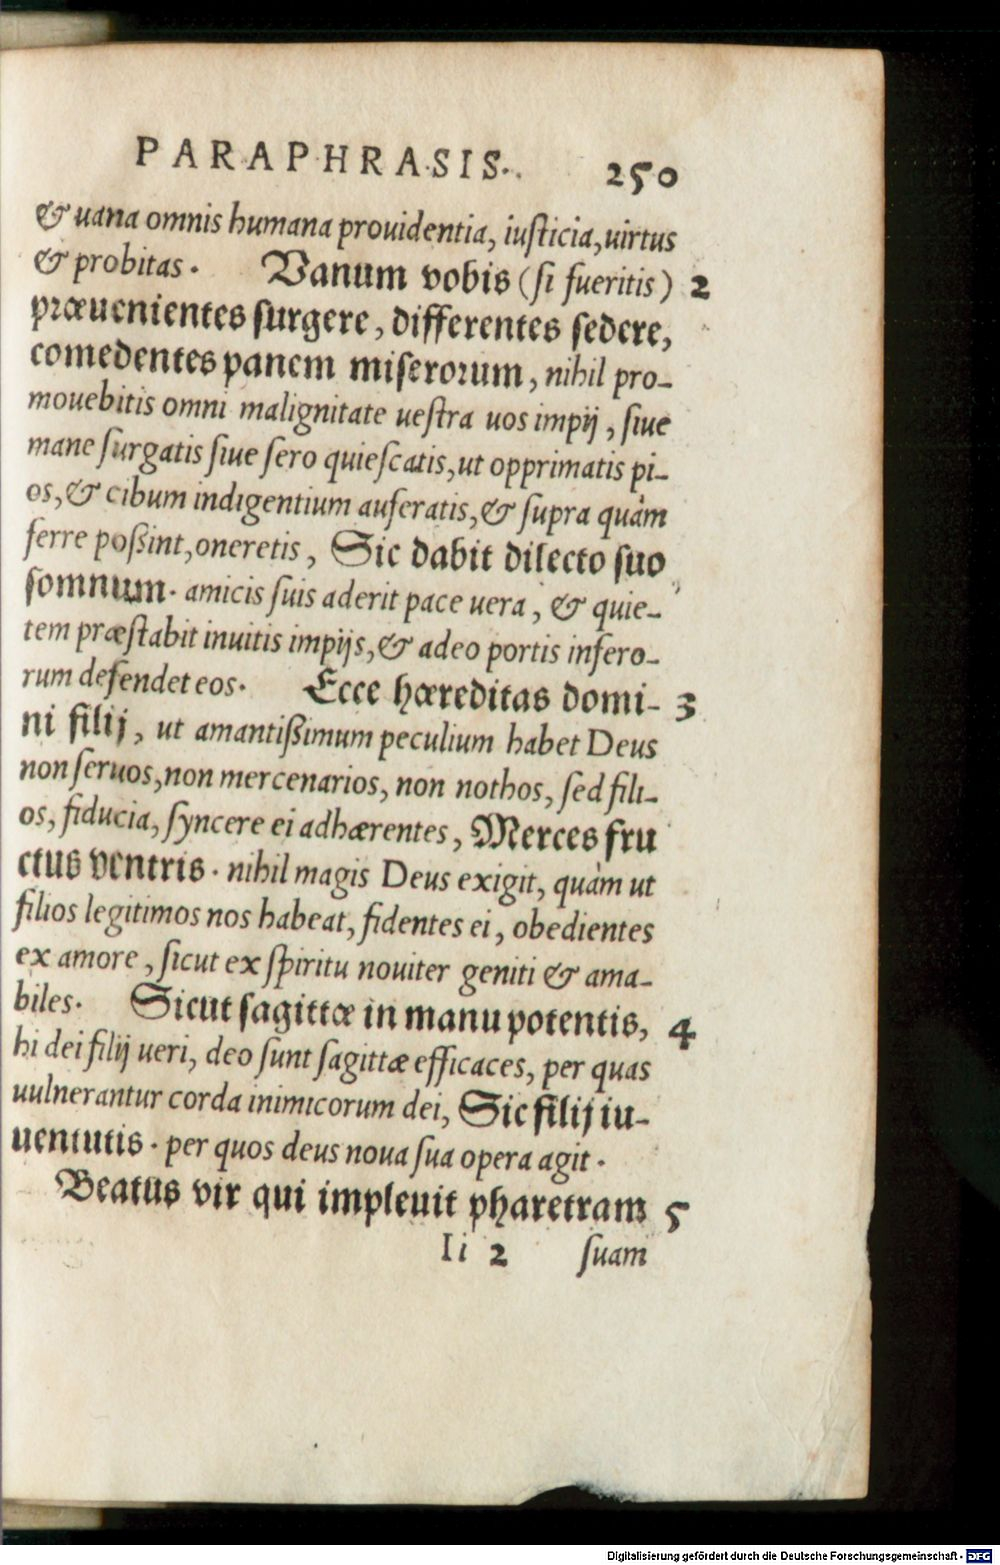 PARAPHRASIS. 250
& uana omnis humana prouidentia, iusticia, uirtus
& probitas. Vanum vobis (si fueritis) 2
præuenientes surgere, differentes sedere,
comedentes panem miserorum, nihil pro-
mouebitis omni malignitate uestra uos impij, siue
mane surgatis siue sero quiescatis, ut opprimatis pi-
os, & cibum indigentium auferatis, & supra quàm
ferre poßint, oneretis, Sic dabit dilecto suo
somnum. amicis suis aderit pace uera, & quie-
tem præstabit inuitis impijs, & adeo portis infero-
rum defendet eos. Ecce hæreditas domi- 3
ni filij, ut amantißimum peculium habet Deus
non seruos, non mercenarios, non nothos, sed fili-
os, fiducia, syncere ei adhærentes, Merces fru
ctus ventris. nihil magis Deus exigit, quàm ut
filios legitimos nos habeat, fidentes ei, obedientes
ex amore, sicut ex spiritu nouiter geniti & ama-
biles. Sicut sagittæ in manu potentis, 4
hi dei filij ueri, deo sunt sagittæ efficaces, per quas
uulnerantur corda inimicorum dei, Sic filij iu-
uentutis. per quos deus noua sua opera agit.
Beatus vir qui impleuit pharetram 5
Ii 2 suam
Digitalisierung gefördert durch die Deutsche Forschungsgemeinschaft - DFG